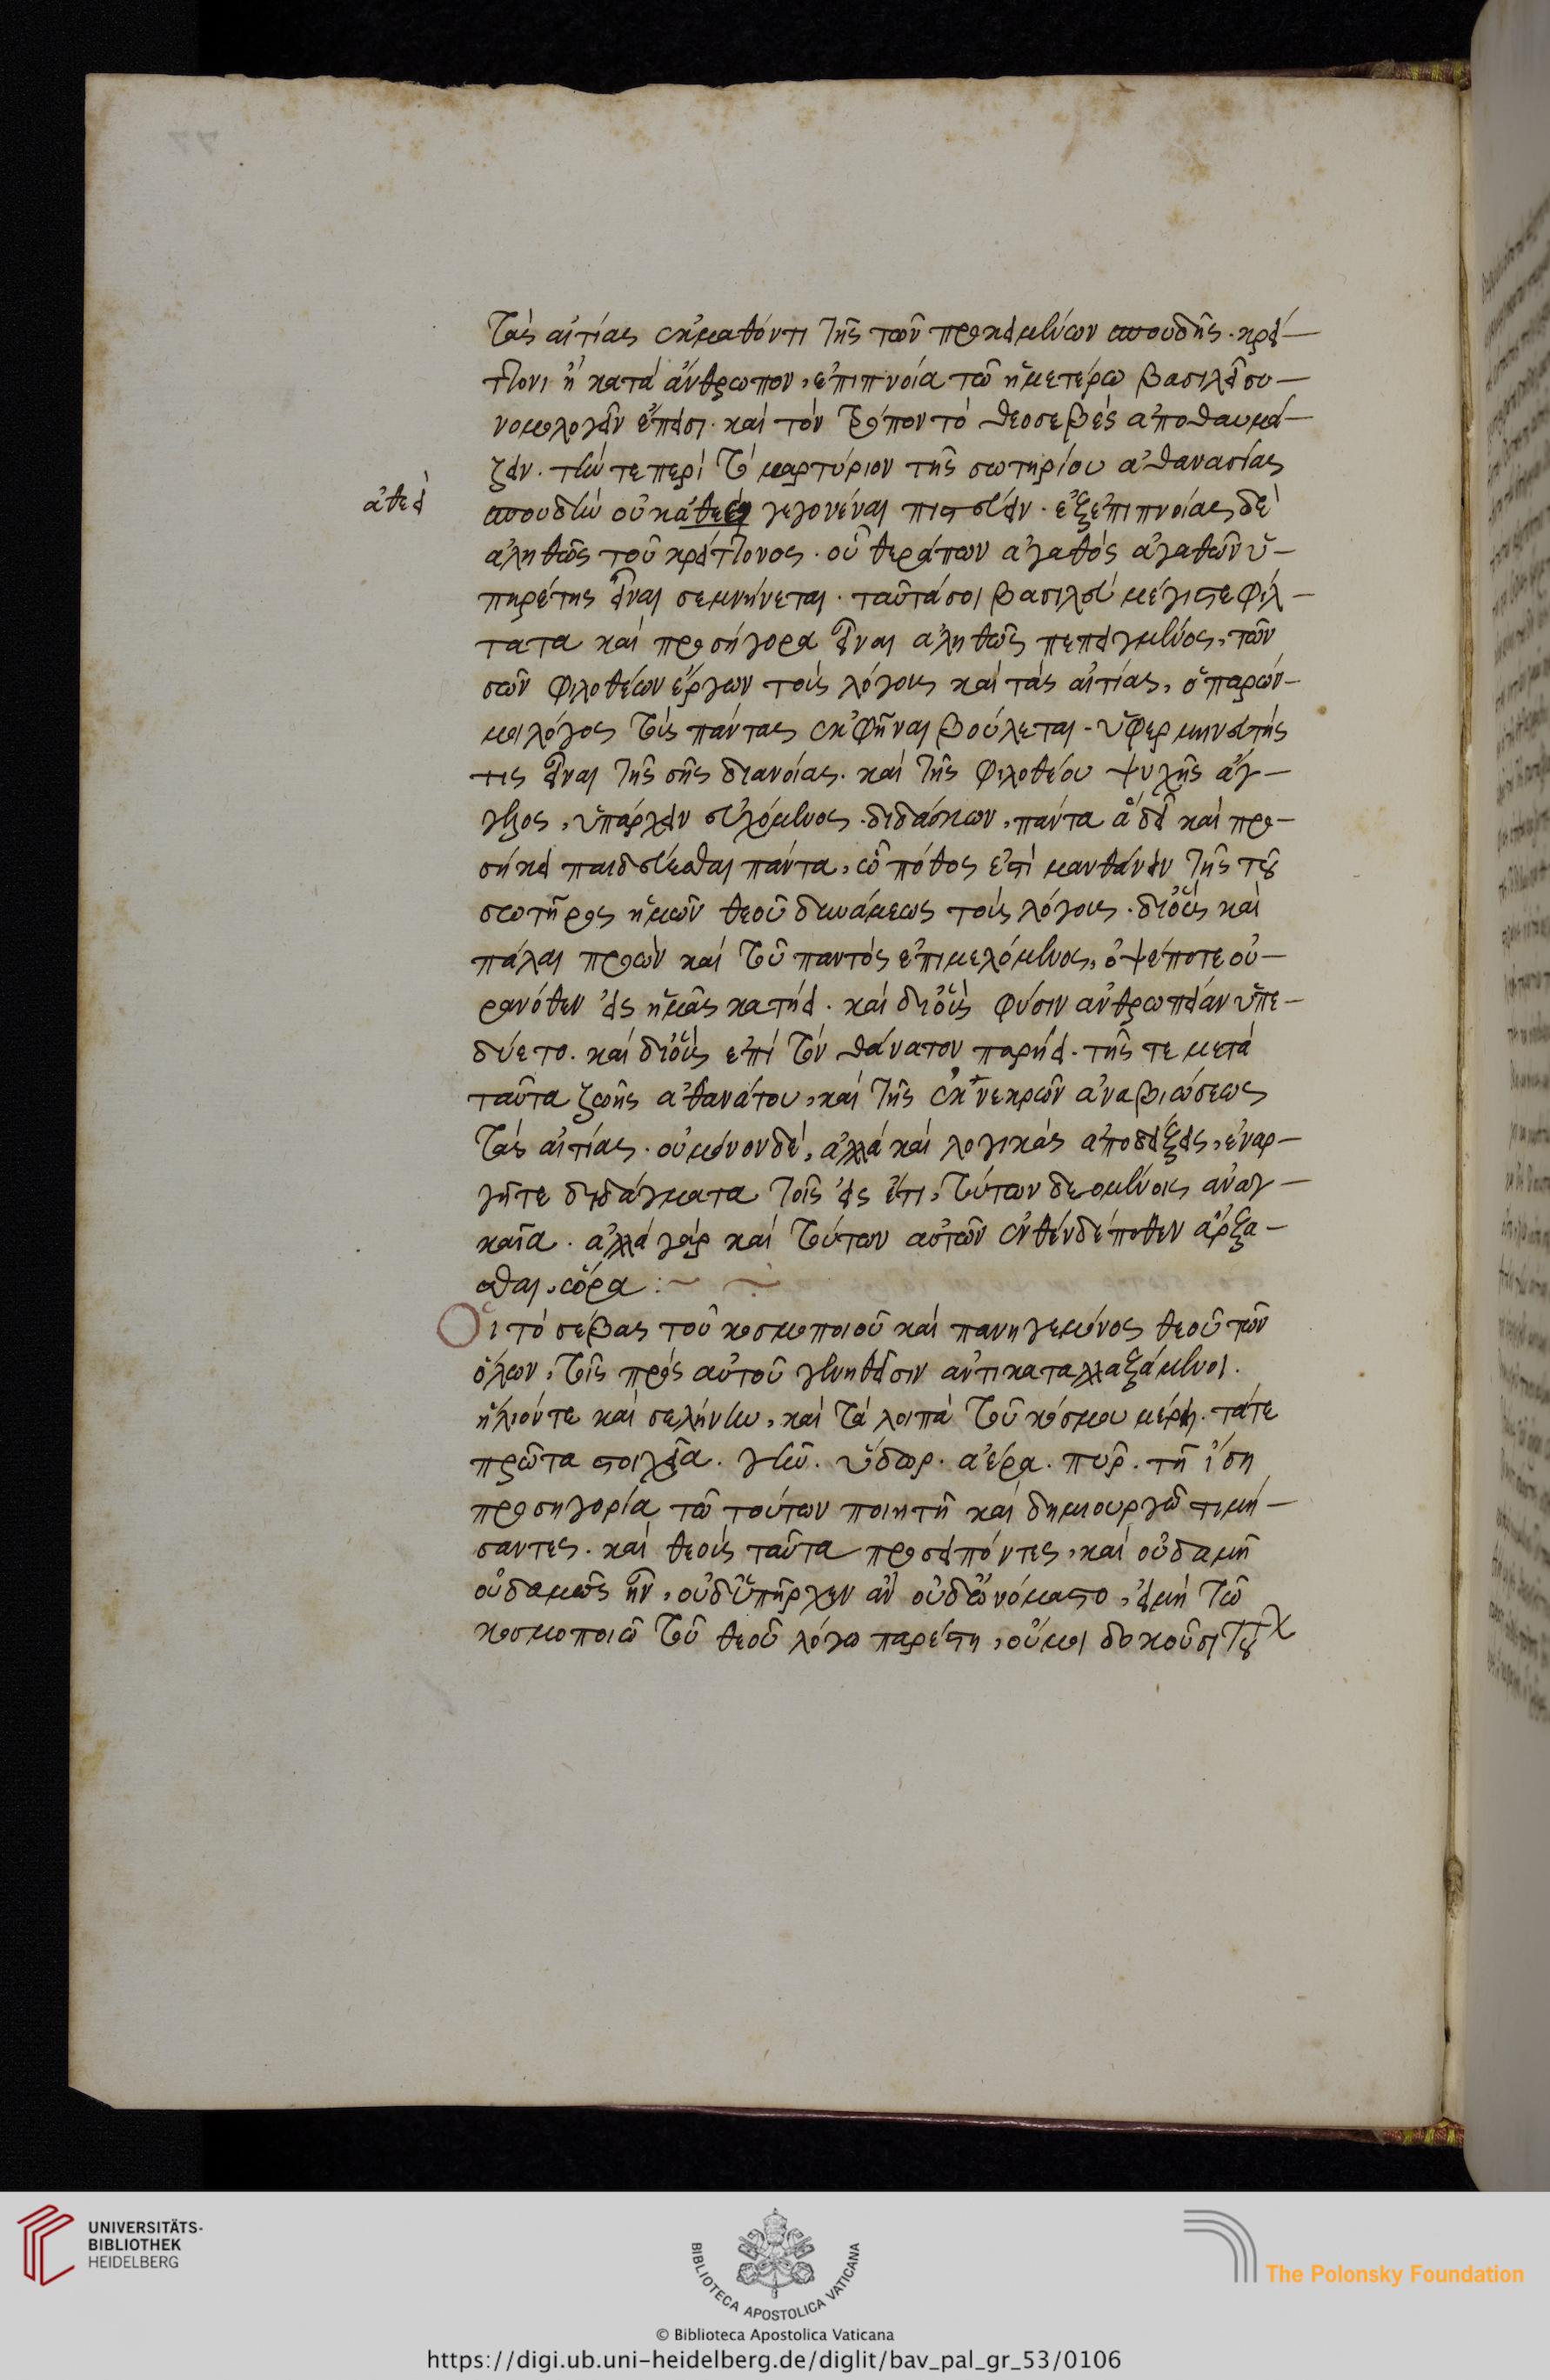 τὰς αἰτίας ἐκμαθόντι τῆς τῶν προκειμένων σπουδῆς. κρεί-
ττονι ἢ κατὰ ἄνθρωπον, ἐπιπνοία τῶ ἡμετέρω βασιλεῖ συ-
νομολογεῖν ἔπεισι. καὶ τὸν τρόπον τὸ θεοσεβὲς ἀποθαυμά-
ζειν. τήν τε περὶ τὸ μαρτύριον τῆς σωτηρίου ἀθανασίας
ἀθεεὶ
σπουδὴν οὐκ ἀθεεὶ γεγονέναι πιστεύειν. ἐξ ἐπιπνοίας δὲ
ἀληθῶς τοῦ κρείττονος. οὗ θεράπων ἀγαθὸς ἀγαθῶν ὑ-
πηρέτης εἶναι σεμνύνεται. ταῦτά σοι βασιλεῦ μέγιστε φίλ-
τατα καὶ προσήγορα εἶναι ἀληθῶς πεπεισμένος, τῶν
σῶν φιλοθέων ἔργων τοὺς λόγους καὶ τὰς αἰτίας, ὁ παρών
μοι λόγος εἰς πάντας ἐκφῆναι βούλεται. ὑφερμηνευτής
τις εἶναι τῆς σῆς διανοίας. καὶ τῆς φιλοθέου ψυχῆς ἄγ-
γελος, ὑπάρχειν εὐχόμενος. διδάσκων, πάντα ἃ δεῖ καὶ προ-
σήκει παιδεύεσθαι πάντα, ὧ πόθος ἐστὶ μανθάνειν τῆς τοῦ
σωτῆρος ἡμῶν θεοῦ δυνάμεως τοὺς λόγους. δι' οὓς καὶ
πάλαι προὼν καὶ τοῦ παντὸς ἐπιμελόμενος, ὀψέ ποτε οὐ-
ρανόθεν εἰς ἡμᾶς κατήει. καὶ δι' οὓς φύσιν ἀνθρωπείαν ὑπε-
δύετο. καὶ δι' οὓς ἐπὶ τὸν θάνατον παρήει. τῆς τε μετὰ
ταῦτα ζωῆς ἀθανάτου, καὶ τῆς ἐκ νεκρῶν ἀναβιώσεως
τὰς αἰτίας. οὐ μόνον δέ, ἀλλὰ καὶ λογικὰς ἀποδείξεις, ἐναρ-
γῆ τε διδάγματα τοῖς εἰς ἔτι, τούτων δεομένοις ἀναγ-
καῖα. ἀλλὰ γὰρ καὶ τούτων αὐτῶν ἐνθένδέ ποθεν ἄρξα-
σθαι, ὥρα :~ ~
Οἱ τὸ σέβας τοῦ κοσμοποιοῦ καὶ πανηγεμόνος θεοῦ τῶν
ὅλων, τοῖς πρὸς αὐτοῦ γενηθεῖσιν ἀντικαταλλαξάμενοι.
ἥλιόν τε καὶ σελήνην, καὶ τὰ λοιπὰ τοῦ κόσμου μέρη. τά τε
πρῶτα στοιχεῖα. γῆν. ὕδωρ. ἀέρα. πῦρ. τῆ ἴση
προσηγορία τῶ τούτων ποιητῆ καὶ δημιουργῶ τιμή-
σαντες. καὶ θεοὺς ταῦτα προσειπόντες, καὶ οὐδαμῆ
οὐδαμῶς ἦν, οὐδ' ὑπῆρχεν ἂν οὐδ' ὠνόμαστο, εἰ μὴ τῶ
κοσμοποιῶ τοῦ θεοῦ λόγω παρέστη, οὔ μοι δοκοῦσι
UNIVERSITÄTS-
BIBLIOTHEK
HEIDELBERG
BIBLIOTECA APOSTOLICA VATICANA
The Polonsky Foundation
© Biblioteca Apostolica Vaticana
https://digi.ub.uni-heidelberg.de/diglit/bav_pal_gr_53/0106